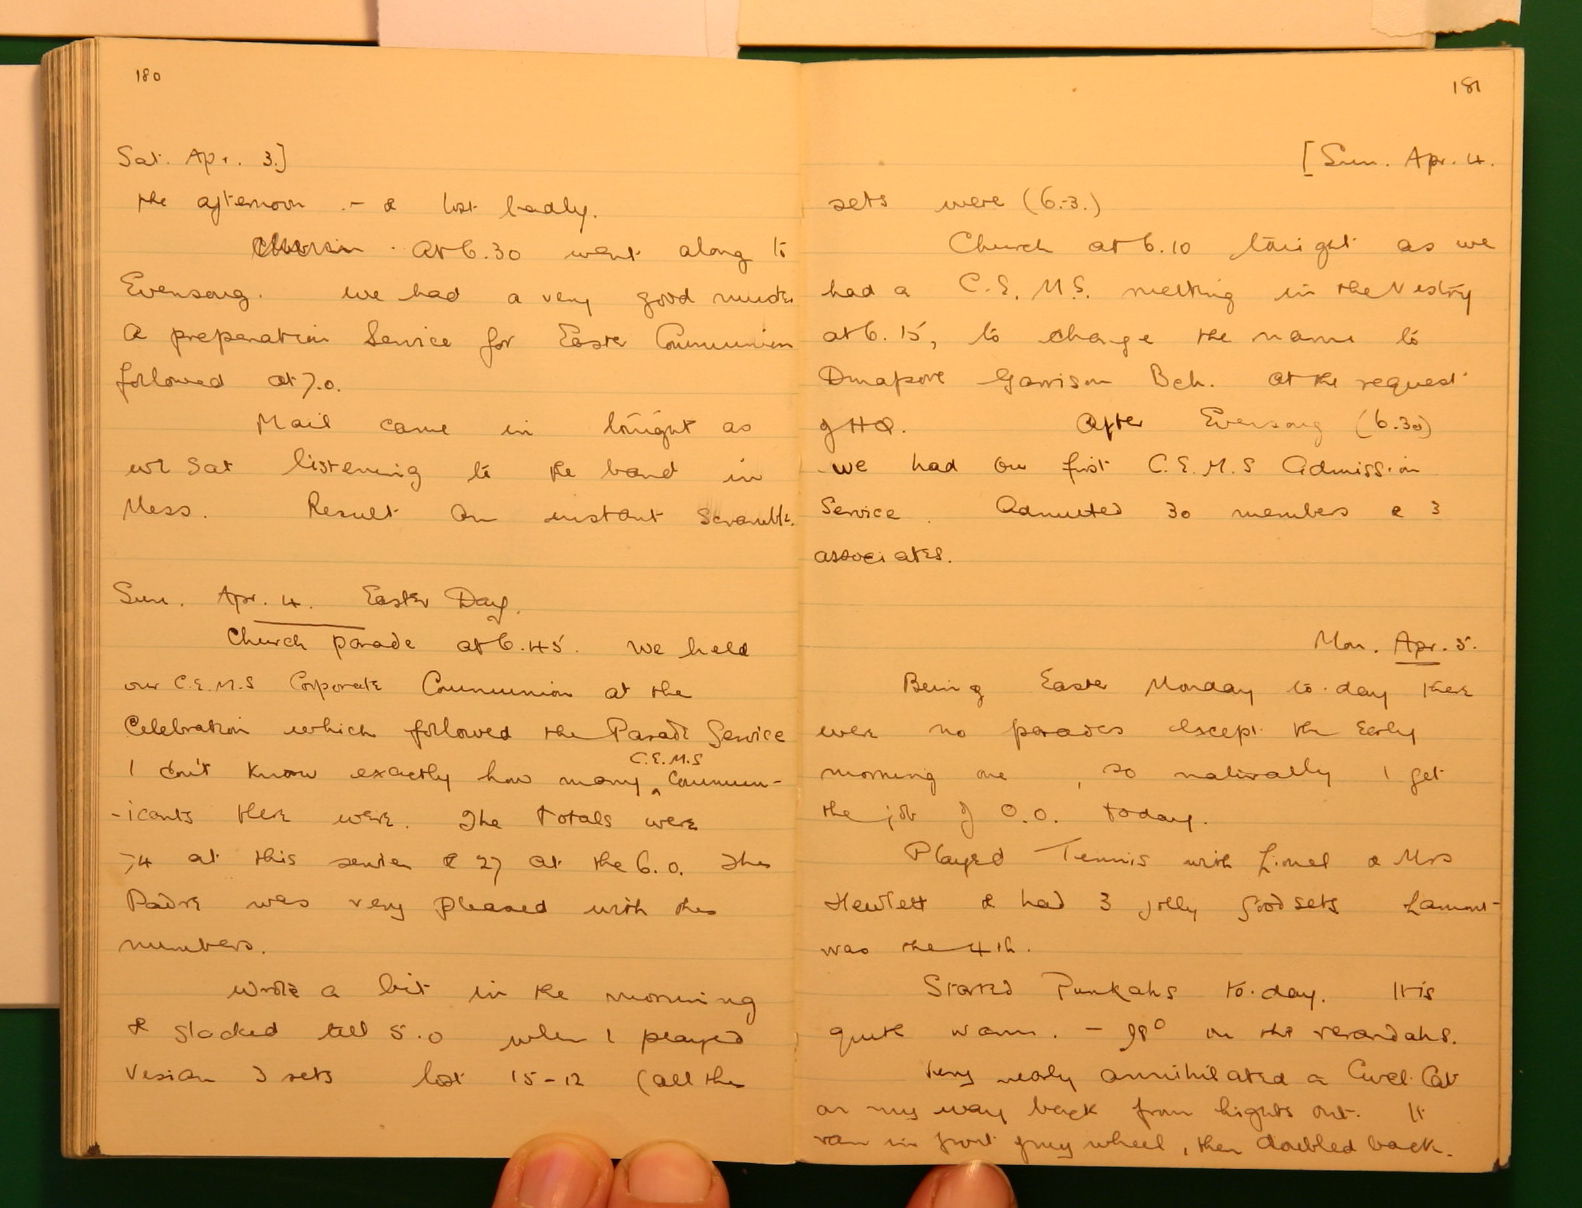 180
Sat. Apr. 3.]
the afternoon - & lost badly.
At 6.30 went along to
Evensong. We had a very good number
A preparation Service for Easter Communion
followed at 7.0.
Mail came in tonight as
we sat listening to the band in
Mess. Result an instant scramble.
Sun. Apr. 4. Easter Day.
Church parade at 6.45. We held
our C.E.M.S Corporate Communion at the
Celebration which followed the Parade Service
I don't know exactly how many C.E.M.S Commun-
-icants there were. The totals were
74 at this service & 27 at the 6.0. The
Padre was very pleased with the
numbers.
Wrote a bit in the morning
& slacked till 5.0 when I played
3 sets lost 15-12 (all the
181
[Sun. Apr. 4.
sets were (6-3.)
Church at 6.10 tonight as we
had a C.E.M.S. meeting in the Vestry
at 6.15, to change the name to
Dinapore Garrison Bch. at the request
of HQ. After Evensong (6.30)
we had our first C.E.M.S Admission
Service. Admitted 30 members & 3
associates.
Mon. Apr. 5.
Being Easter Monday to-day there
were no parades except the Early
morning one, so naturally I get
the job of O.O. today.
Played Tennis with Lionel & Mrs
Hewlett & had 3 jolly good sets Lamont
was the 4th.
Started Punkahs to-day. It is
quite warm. - 98° in the verandahs.
Very nearly annihilated a Civet Cat
on my way back from lights out. It
ran in front of my wheel, then doubled back.